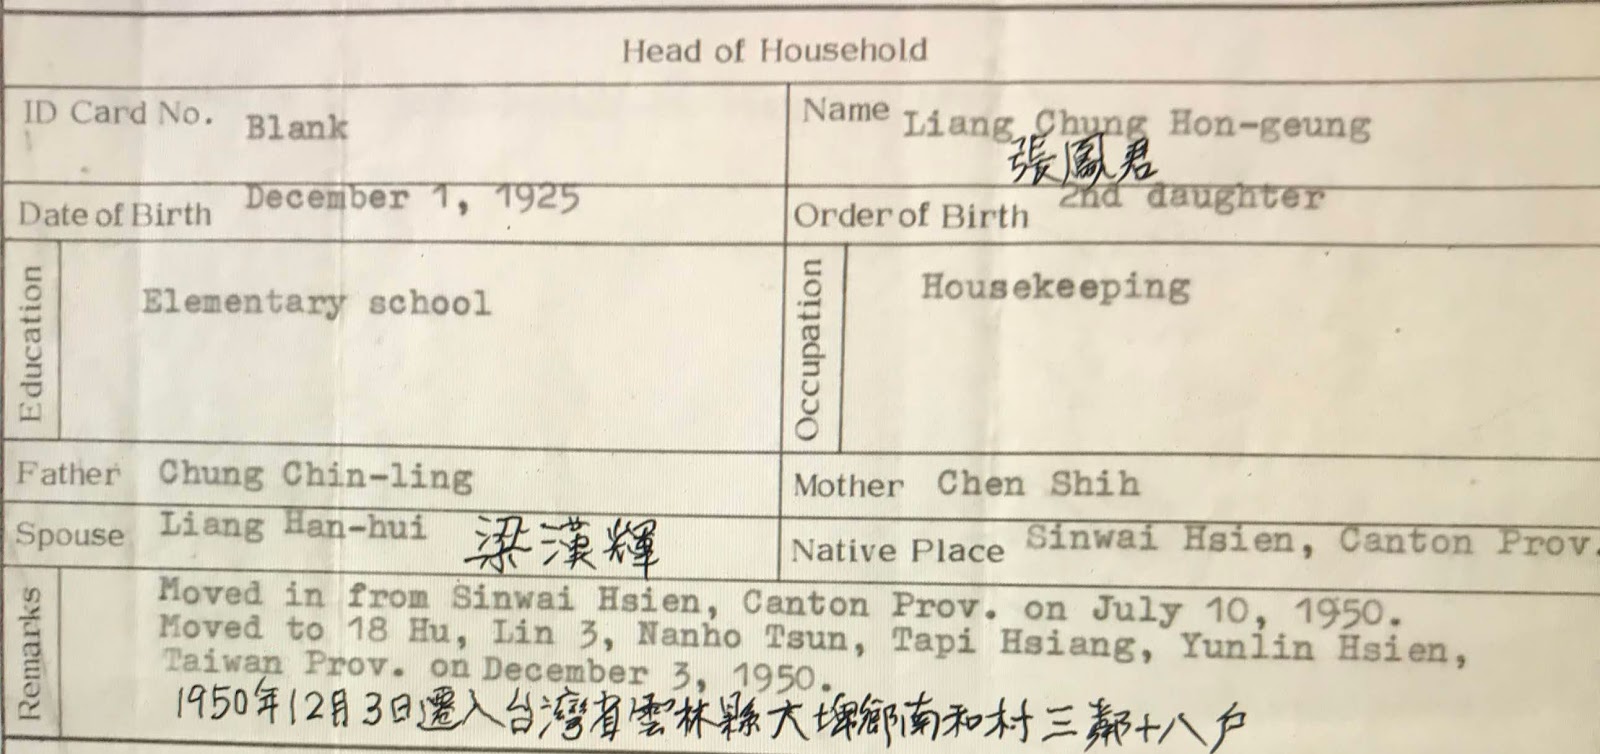 Head of Household
ID Card No. Blank
Name Liang Chung Hon-geung
張鳳君
Date of Birth December 1, 1925
Order of Birth 2nd daughter
Education Elementary school
Occupation Housekeeping
Father Chung Chin-ling
Mother Chen Shih
Spouse Liang Han-hui 梁漢輝
Native Place Sinwai Hsien, Canton Prov.
Remarks
Moved in from Sinwai Hsien, Canton Prov. on July 10, 1950.
Moved to 18 Hu, Lin 3, Nanho Tsun, Tapi Hsiang, Yunlin Hsien,
Taiwan Prov. on December 3, 1950.
1950年12月3日遷入台灣省雲林縣大埤鄉南和村三鄰十八戶